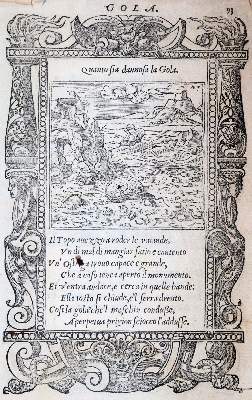 GOLA.
93
Quanto sia dannosa la Gola.
Il Topo auezzo a roder le viuande,
Un dì mal di mangiar satio e contento
Un' Ostrica trouò capace e grande,
Che a caso tenea aperto il monumento.
Ei v'entra andace, e cerca in quelle bande:
Ella tosto si chiude, e'l serra drento.
Così la gola, che'l meschin condusse,
A perpetua prigion sciocco l'addusse.